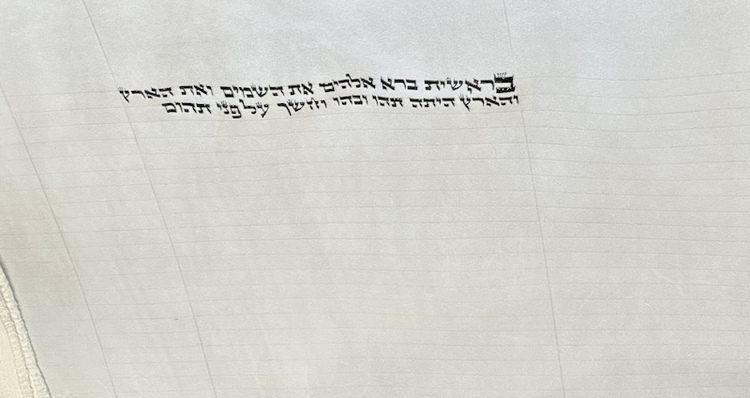 בראשית ברא אלהים את השמים ואת הארץ
והארץ היתה תהו ובהו וחשך על פני תהום